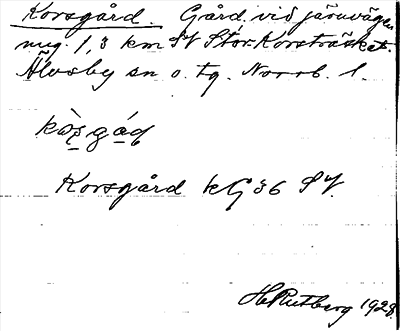 Korsgård. Gård vid järnvägen
nug. 1,3 km SV Stor-Korsträsket.
Älvsby sn o. tg. Norrb. l.
Korsgård kG 36 SV.
H. Rutberg 1928.